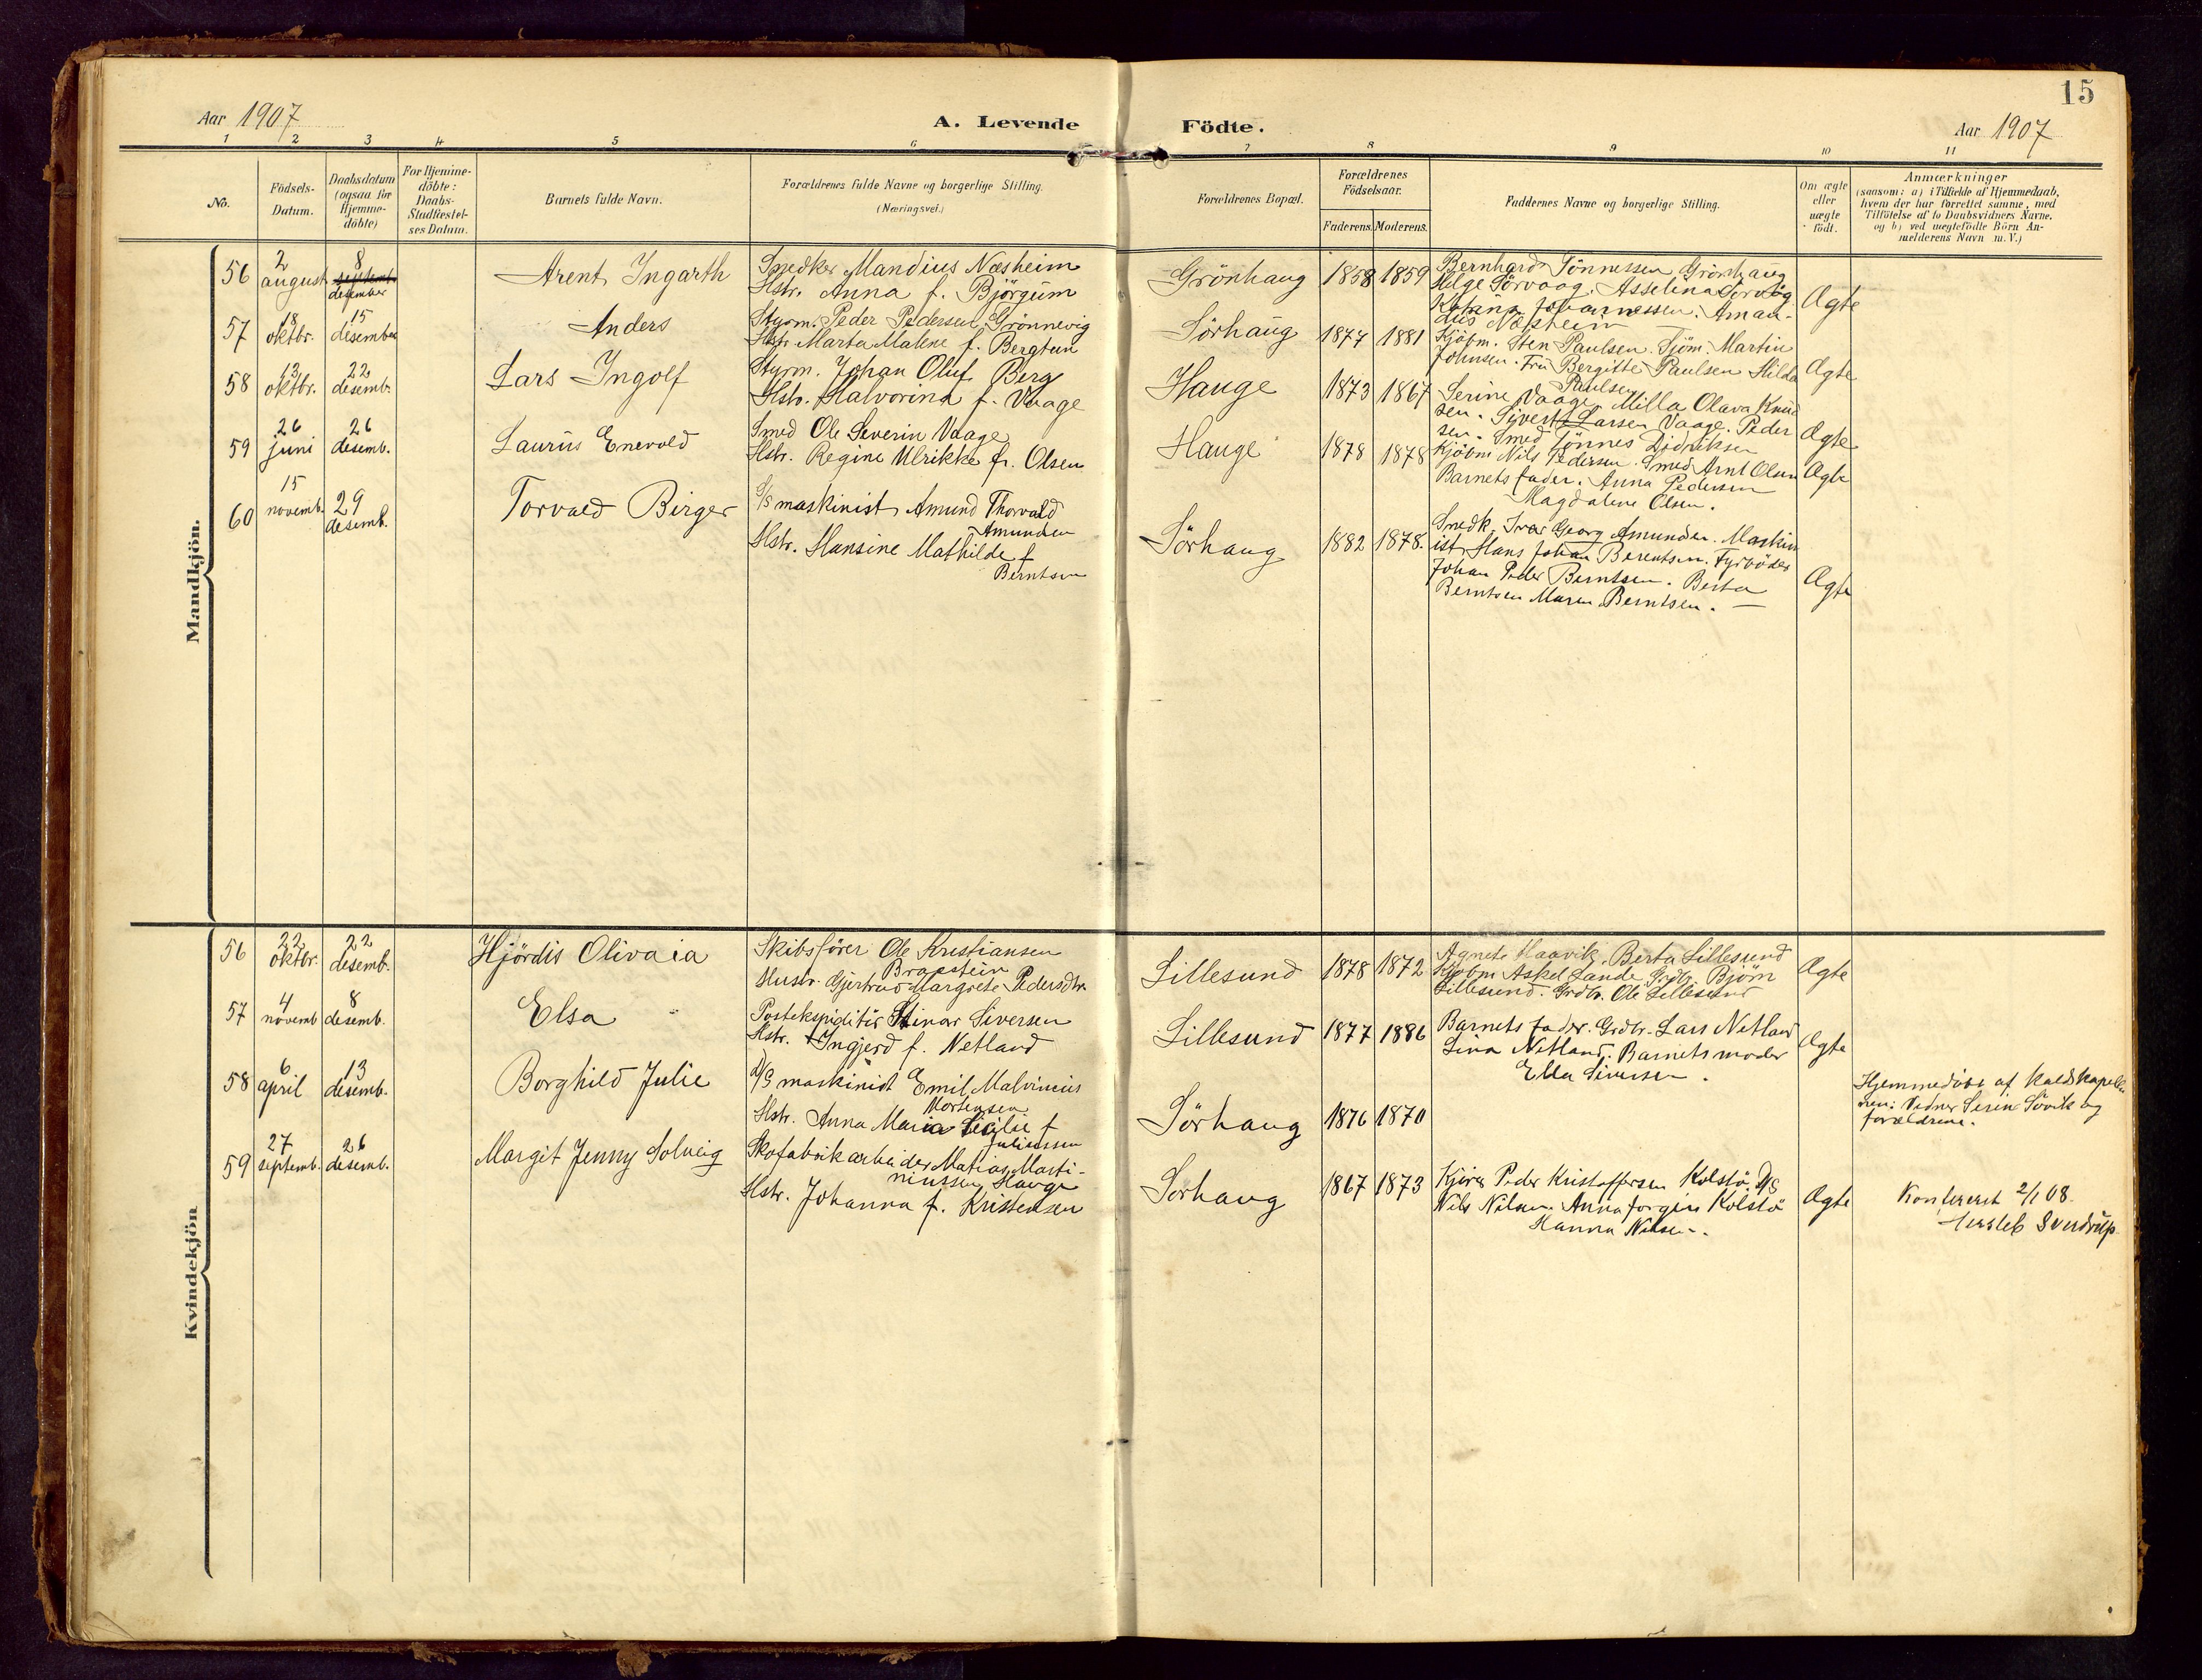 15
Aar 1907
A. Levende
Födte.
Aar 1907
1 2 3 4 5 6 7 8 9 10 11
No.
Födsels-
Datum.
Daabsdatum
(ogsaa for
Hjemme-
döbte)
For Hjemme-
döbte:
Daabs-
Stadfestel-
ses Datum.
Barnets fulde Navn.
Forældrenes fulde Navne og borgerlige Stilling.
(Næringsvei.)
Forældrenes Bopæl.
Forældrenes
Födselsaar.
Faderens. Moderens.
Faddernes Navne og borgerlige Stilling.
Om ægte
eller
uægte
födt.
Anmærkninger
(saasom: a) i Tilfælde af Hjemmedaab,
hvem der har forrettet samme, med
Tilföielse af to Daabsvidners Navne,
og b) ved uægtefödte Börn An-
melderens Navn m. V.)
Mandkjön.
56
2
august
8
septemb.
desember
Arent Ingarth
Snedker Mandius Næsheim
Hstr. Anna f. Björgum
Grönhaug
1858
1859
Bernhard Tönnessen Grönhaug
Helge Sörvaag. Asselina Sorvåg
Katrina Johannessen. Aman-
dus Næsheim
Ægte
57
18
oktbr.
15
desember
Anders
Styrm. Peder Pedersen Grönnevig
Hstr. Marta Malene f. Bergtun
Sörhaug
1877
1881
Kjöbm. Sten Paulsen. Sjöm. Martin
Johnsen. Fru Bergitte Paulsen Hilda
Paulsen
Ægte
58
13
oktbr.
22
desemb.
Lars Ingolf
Styrm. Johan Oluf Berg
Hstr. Halvorina f. Vaage
Hauge
1873
1867
Serine Vaage Milla Olava Knud
sen. Sivert Larsen Vaage. Peder
sen. Smed Tönnes Didriksen
Ægte
59
26
juni
26
desemb.
Laurus Enevold
Smed Ole Severin Vaage
Hstr. Regine Ulrikke f. Olsen
Hauge
1878
1878
Kjöbm Nils Pedersen. Smed Arnt Olsen
Barnets fader. Anna Pedersen
Magdalene Olsen.
Ægte
60
15
novemb.
29
desemb.
Torvald Birger
S/S maskinist Amund Thorvald
Amundsen
Hstr. Hansine Mathilde f
Berntsen
Sörhaug
1882
1878.
Snedk. Ivar Georg Amundsen. Maskin
ist Hans Johan Berentsen. Fyrböder
Johan Peder Berntsen. Berta
Berntsen Maren Berntsen. —
Ægte
Kvindekjön
56
22
oktbr.
22
desemb.
Hjördis Olivaia
Skibsförer Ole Kristiansen
Hustr. Gjertrud Margrete Pedersdtr.
Lillesund
1878
1872
Agnete Haavik. Berta Lillesund
Kjöbm Askel Lande Grdbr. Björn
Lillesund. Grdbr. Ole Lillesund
Ægte
57
4
novemb
8
desemb.
Elsa
Postekspeditör Einar Siversen
Hstr. Ingjerd f. Netland
Lillesund
1877
1886
Barnets fader. Grdbr. Lars Netland
Lina Netland. Barnets moder
Ella Siversen.
Ægte
58
6
april
13
desemb.
Borghild Julie
D/S maskinist Emil Malvinius
Mortensen
Hstr. Anna Maria Secilie f
Juliussen
Sörhaug
1876
1870
Hjemmedöbt af Kaldskapella
nen: Vidner Serin Sövik og
forældrene.
59
27
septemb.
26
desemb.
Margit Jenny Solveig
Skofabrik arbeider Matias Marti-
niussen Hauge
Hstr. Johanna f. Kristensen
Sörhaug
1867
1873
Peder Kristoffersen Kolstö. D/S
Nils Nilsen. Anna Jorgine Kolstö
Hanna Nilsen.
Ægte
Konfereret 2/1 08.
Hersleb Sverdrup